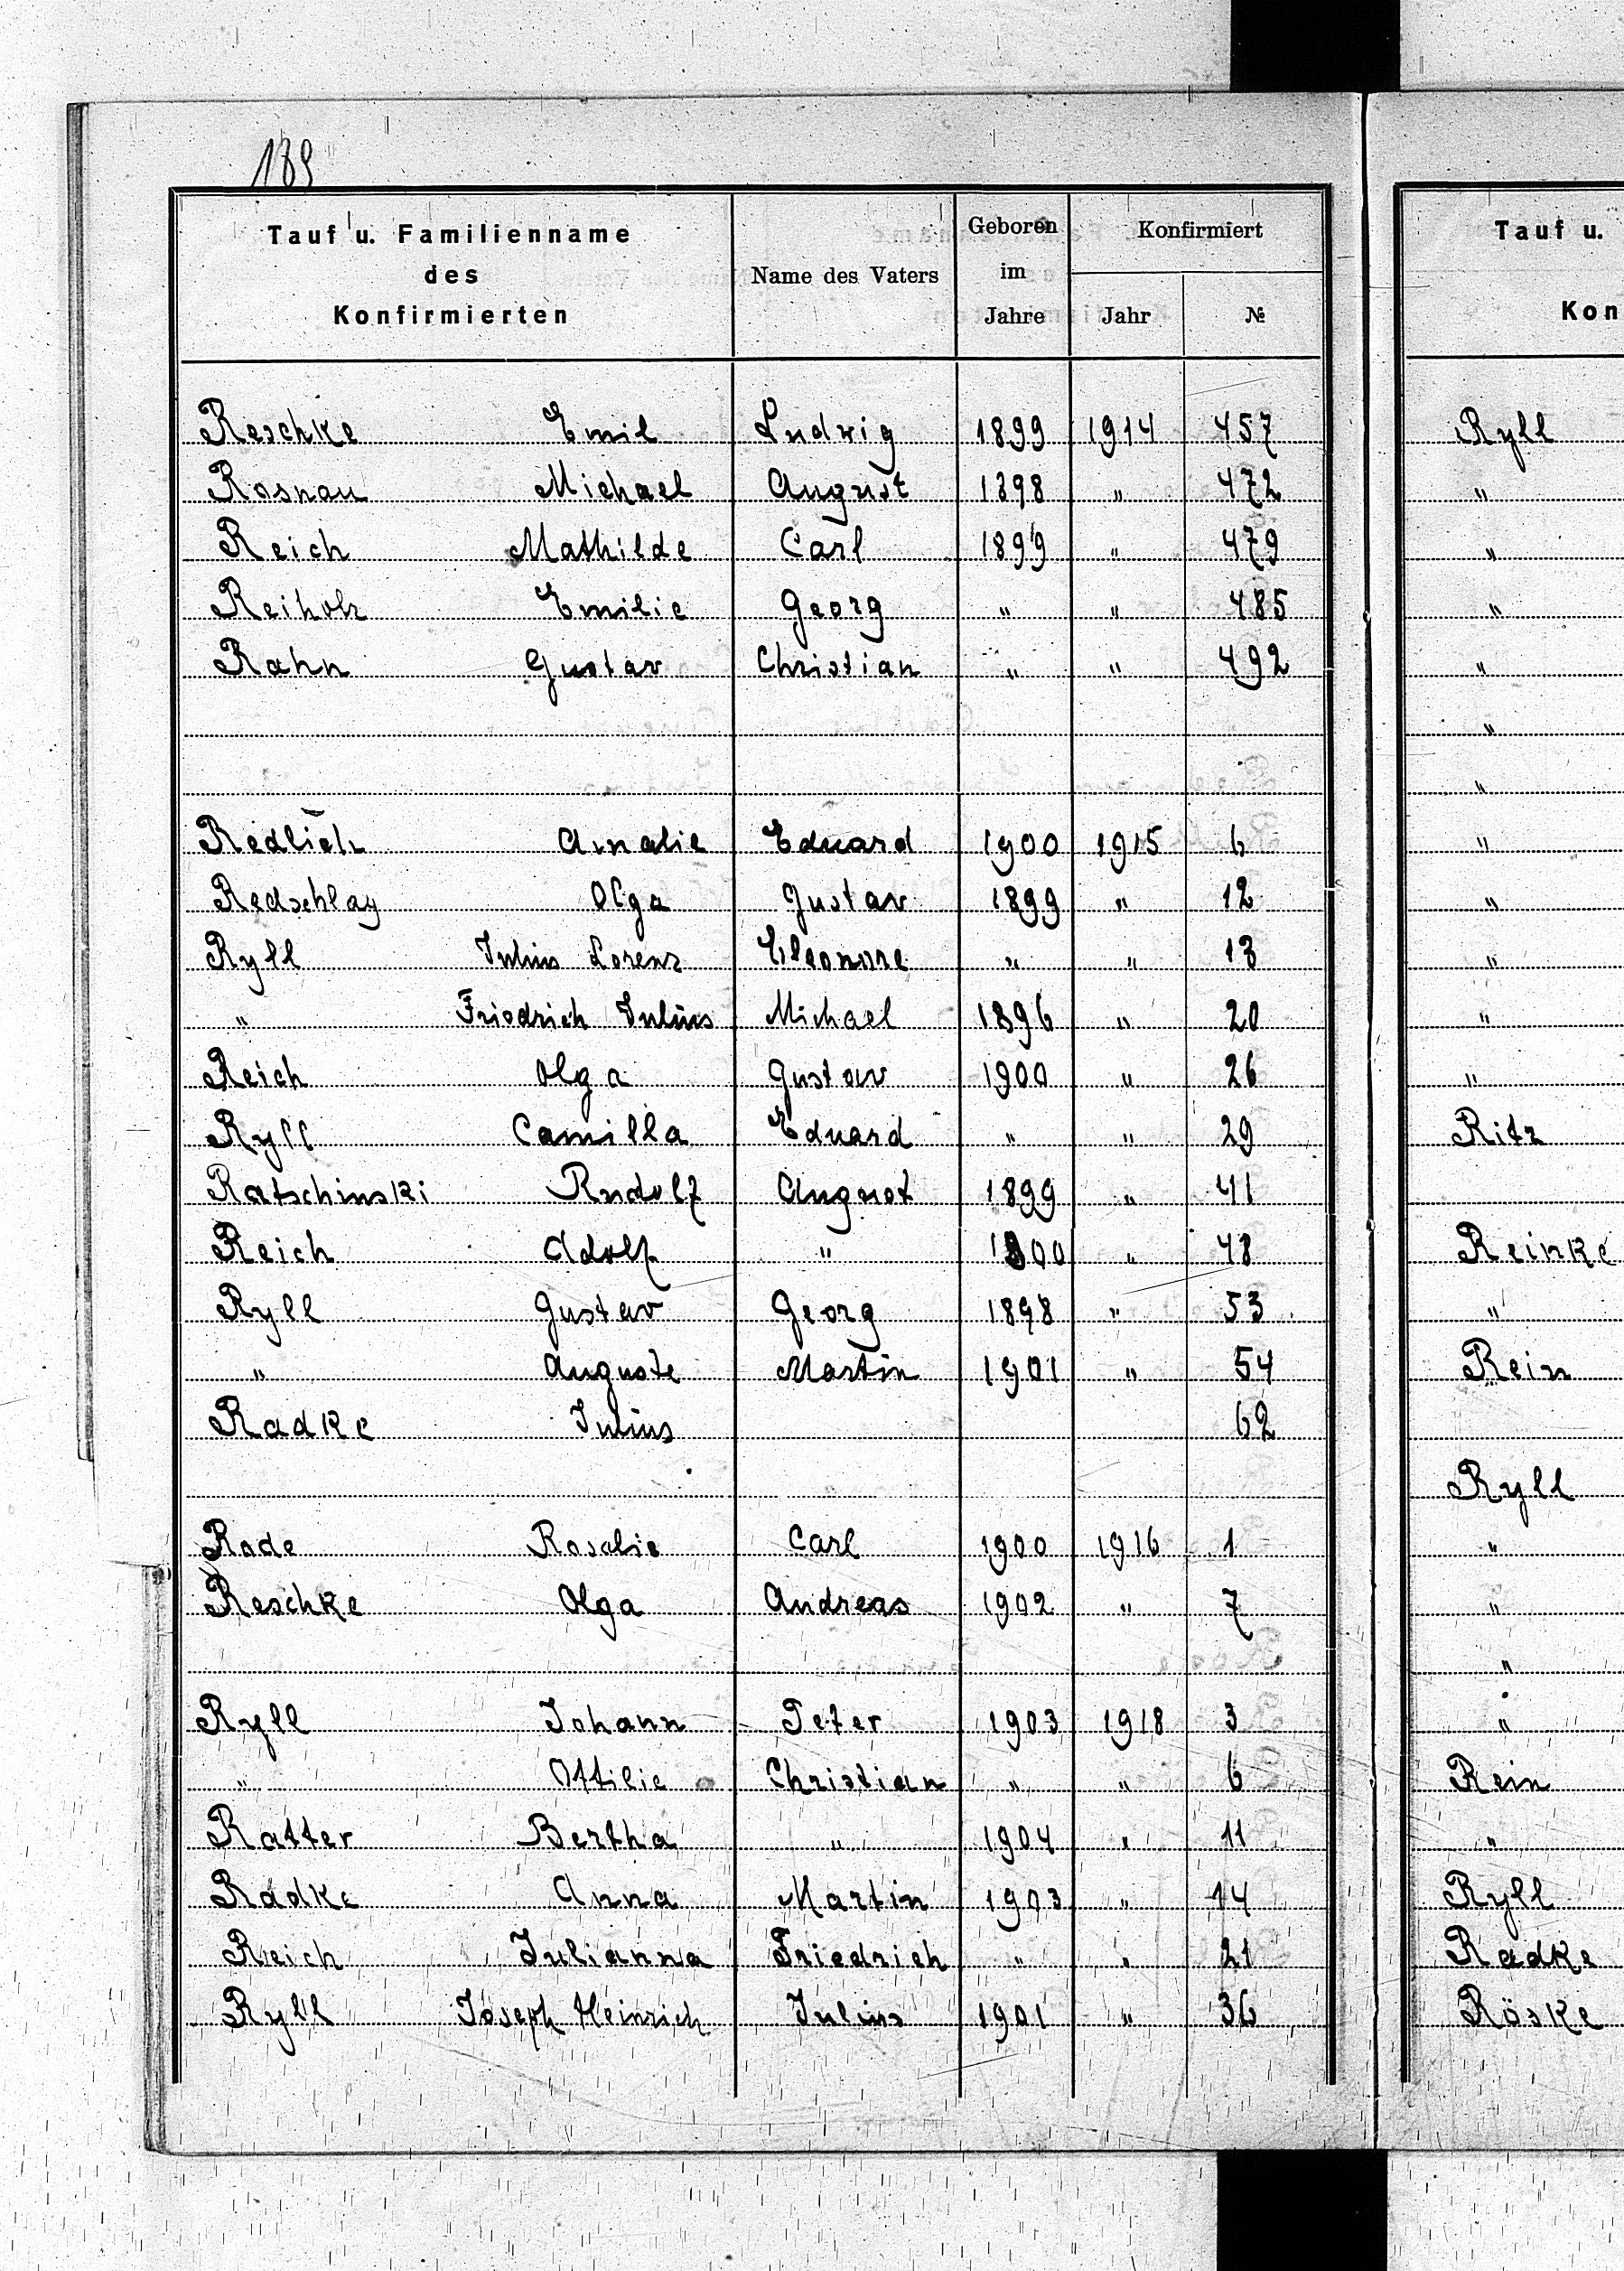 189
Tauf u. Familienname
des
Konfirmierten
Name des Vaters
Geboren
im
Jahre
Konfirmiert
Jahr
№
Reschke Emil Ludwig 1899 1914 457
Rosnau Michael August 1898 " 472
Reich Mathilde Carl 1899 " 479
Reiholz Emilie Georg " " 485
Rahn Gustav Christian " " 492
Redlich Amalie Eduard 1900 1915 6
Redschlag Olga Gustav 1899 " 12
Ryll Julius Lorenz Eleonore " " 13
" Friedrich Julius Michael 1896 " 20
Reich Olga Gustav 1900 " 26
Ryll Camilla Eduard " " 29
Ratschinski Rudolf August 1899 " 41
Reich Adolf " 1900 " 48
Ryll Gustav Georg 1898 " 53
" Auguste Martin 1901 " 54
Radke Julius 62
Rode Rosalie Carl 1900 1916 1
Reschke Olga Andreas 1902 " 7
Ryll Johann Peter 1903 1918 3
" Ottilie Christian " " 6
Ratter Bertha " 1904 " 11
Radke Anna Martin 1903 " 14
Reich Julianna Friedrich " " 21
Ryll Joseph Heinrich Julius 1901 " 36
Tauf u.
Kon
Ryll
"
"
"
"
"
"
"
"
"
"
"
Ritz
Reinke
"
Rein
Ryll
"
"
"
"
Rein
"
Ryll
Radke
Röske